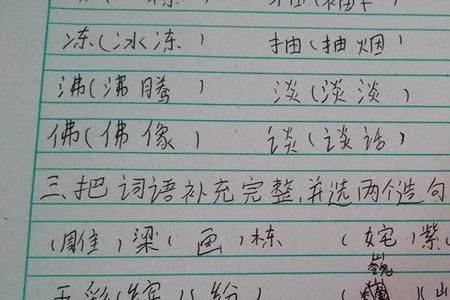 冻(冰冻) 抽(抽烟)
沸(沸腾) 淡(淡淡)
佛(佛像) 谈(谈话)
三、把词语补充完整,并选两个造句
(雕)梁(画)栋 (姹)紫
五彩(缤)(纷)